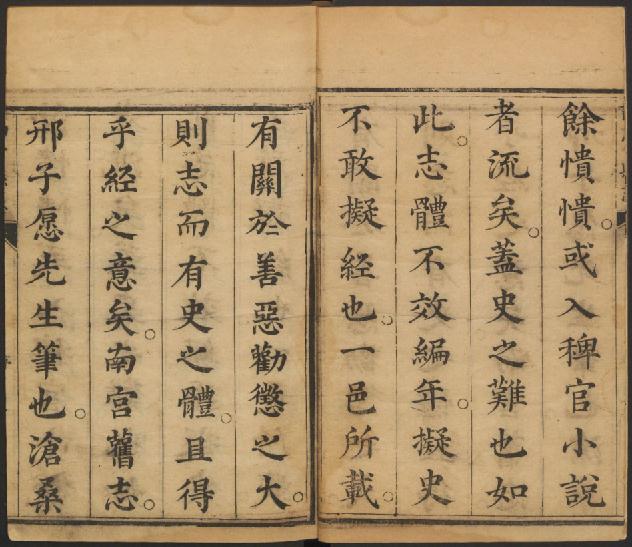 餘憒憒。或入稗官小說
者流矣。蓋史之難也如
此。志體不效編年。擬史
不敢擬經也。一邑所載。
有關於善惡勸懲之大。
則志而有史之體。且得
乎經之意矣。南宮舊志。
邢子愿先生筆也。滄桑